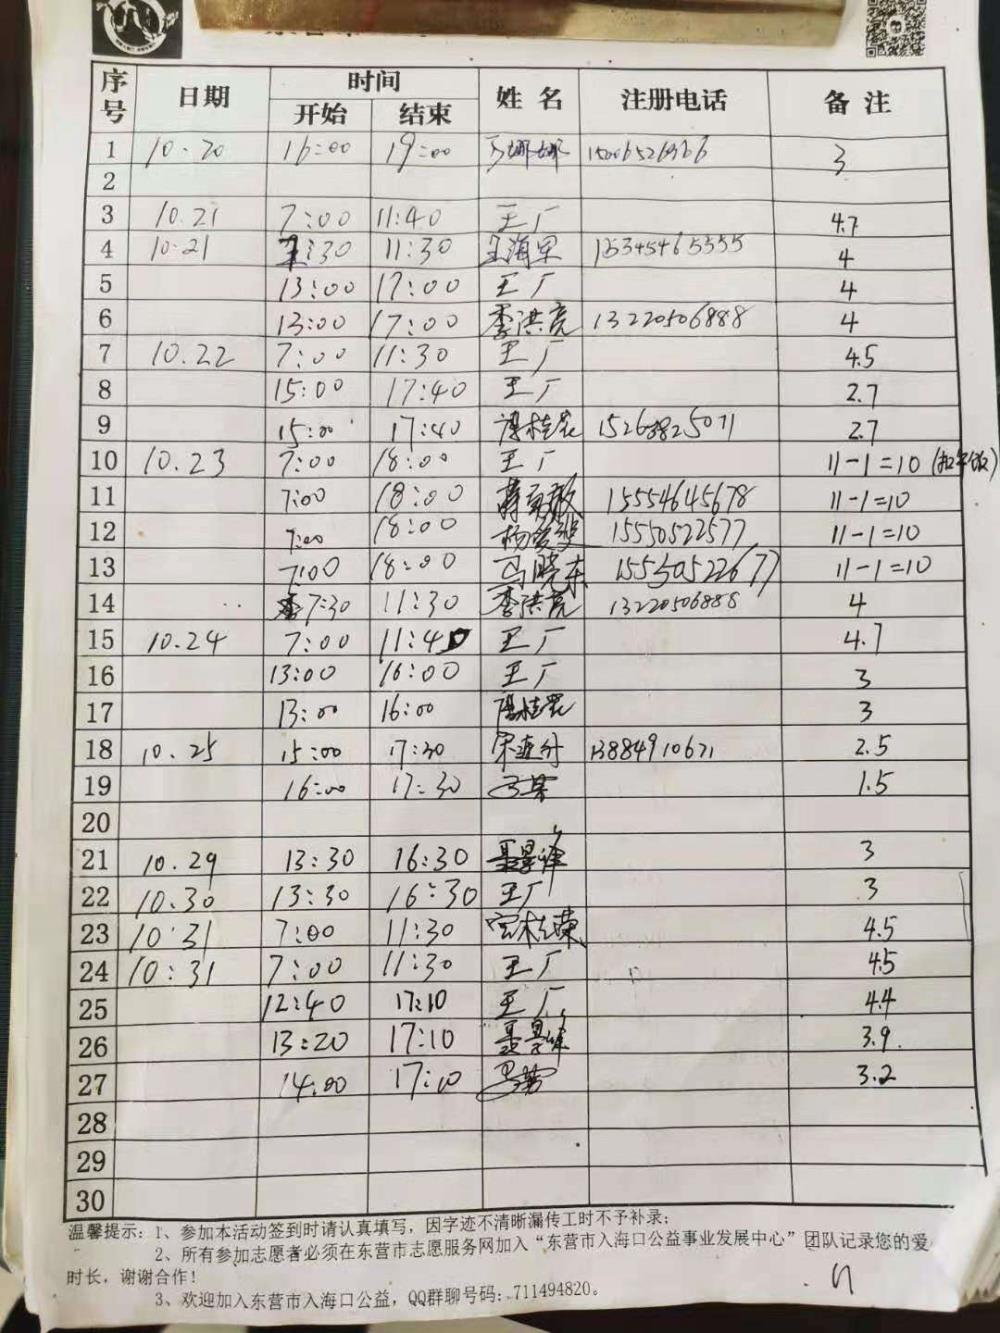 序号 日期 时间 姓名 注册电话 备注
开始 结束
1 10.20 16:00 19:00 娜娜 3
2
3 10.21 7:00 11:40 王厂 4.7
4 10.21 7:30 11:30 王海军 15345465555 4
5 13:00 17:00 王厂 4
6 13:00 17:00 李洪亮 13220506888 4
7 10.22 7:00 11:30 王厂 4.5
8 15:00 17:40 王厂 2.7
9 15:00 17:40 桂花 15263825071 2.7
10 10.23 7:00 18:00 王厂 11-1=10
11 7:00 18:00 15554645678 11-1=10
12 7:00 18:00 杨 15550522577 11-1=10
13 7:00 18:00 马晓东 15530522677 11-1=10
14 7:30 11:30 李洪亮 13220506888 4
15 10.24 7:00 11:40 王厂 4.7
16 13:00 16:00 王厂 3
17 13:00 16:00 桂花 3
18 10.25 15:00 17:30 宋 13884910671 2.5
19 16:00 17:30 1.5
20
21 10.29 13:30 16:30 聂景 3
22 10.30 13:30 16:30 王厂 3
23 10.31 7:00 11:30 4.5
24 10:31 7:00 11:30 王厂 4.5
25 12:40 17:10 王厂 4.4
26 13:20 17:10 聂景 3.9
27 14:00 17:10 3.2
28
29
30
温馨提示：1、参加本活动签到时请认真填写，因字迹不清晰漏传工时不予补录；
2、所有参加志愿者必须在东营市志愿服务网加入“东营市入海口公益事业发展中心”团队记录您的爱
时长，谢谢合作！
3、欢迎加入东营市入海口公益，QQ群聊号码：711494820。